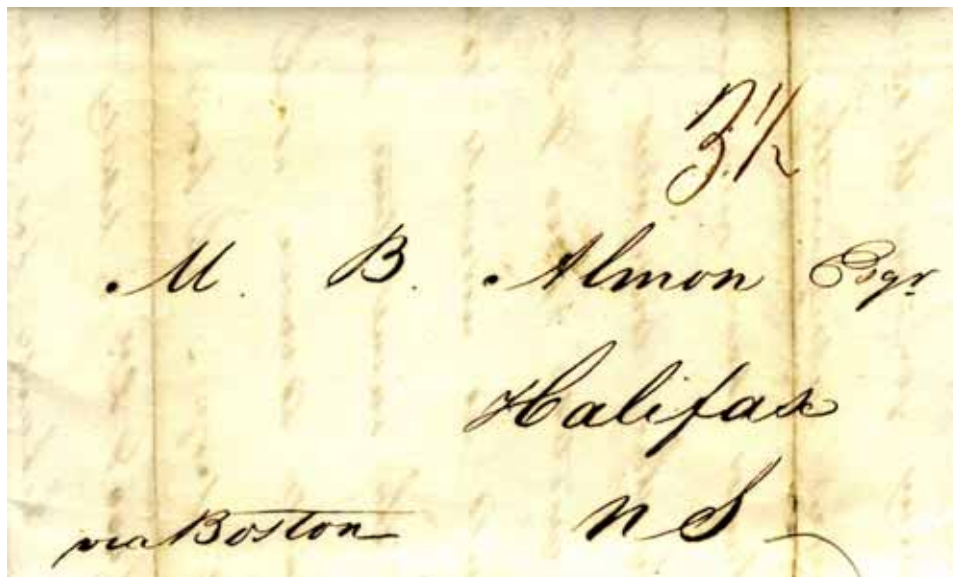 3½
M. B. Almon Esqr
Halifax
via Boston N S